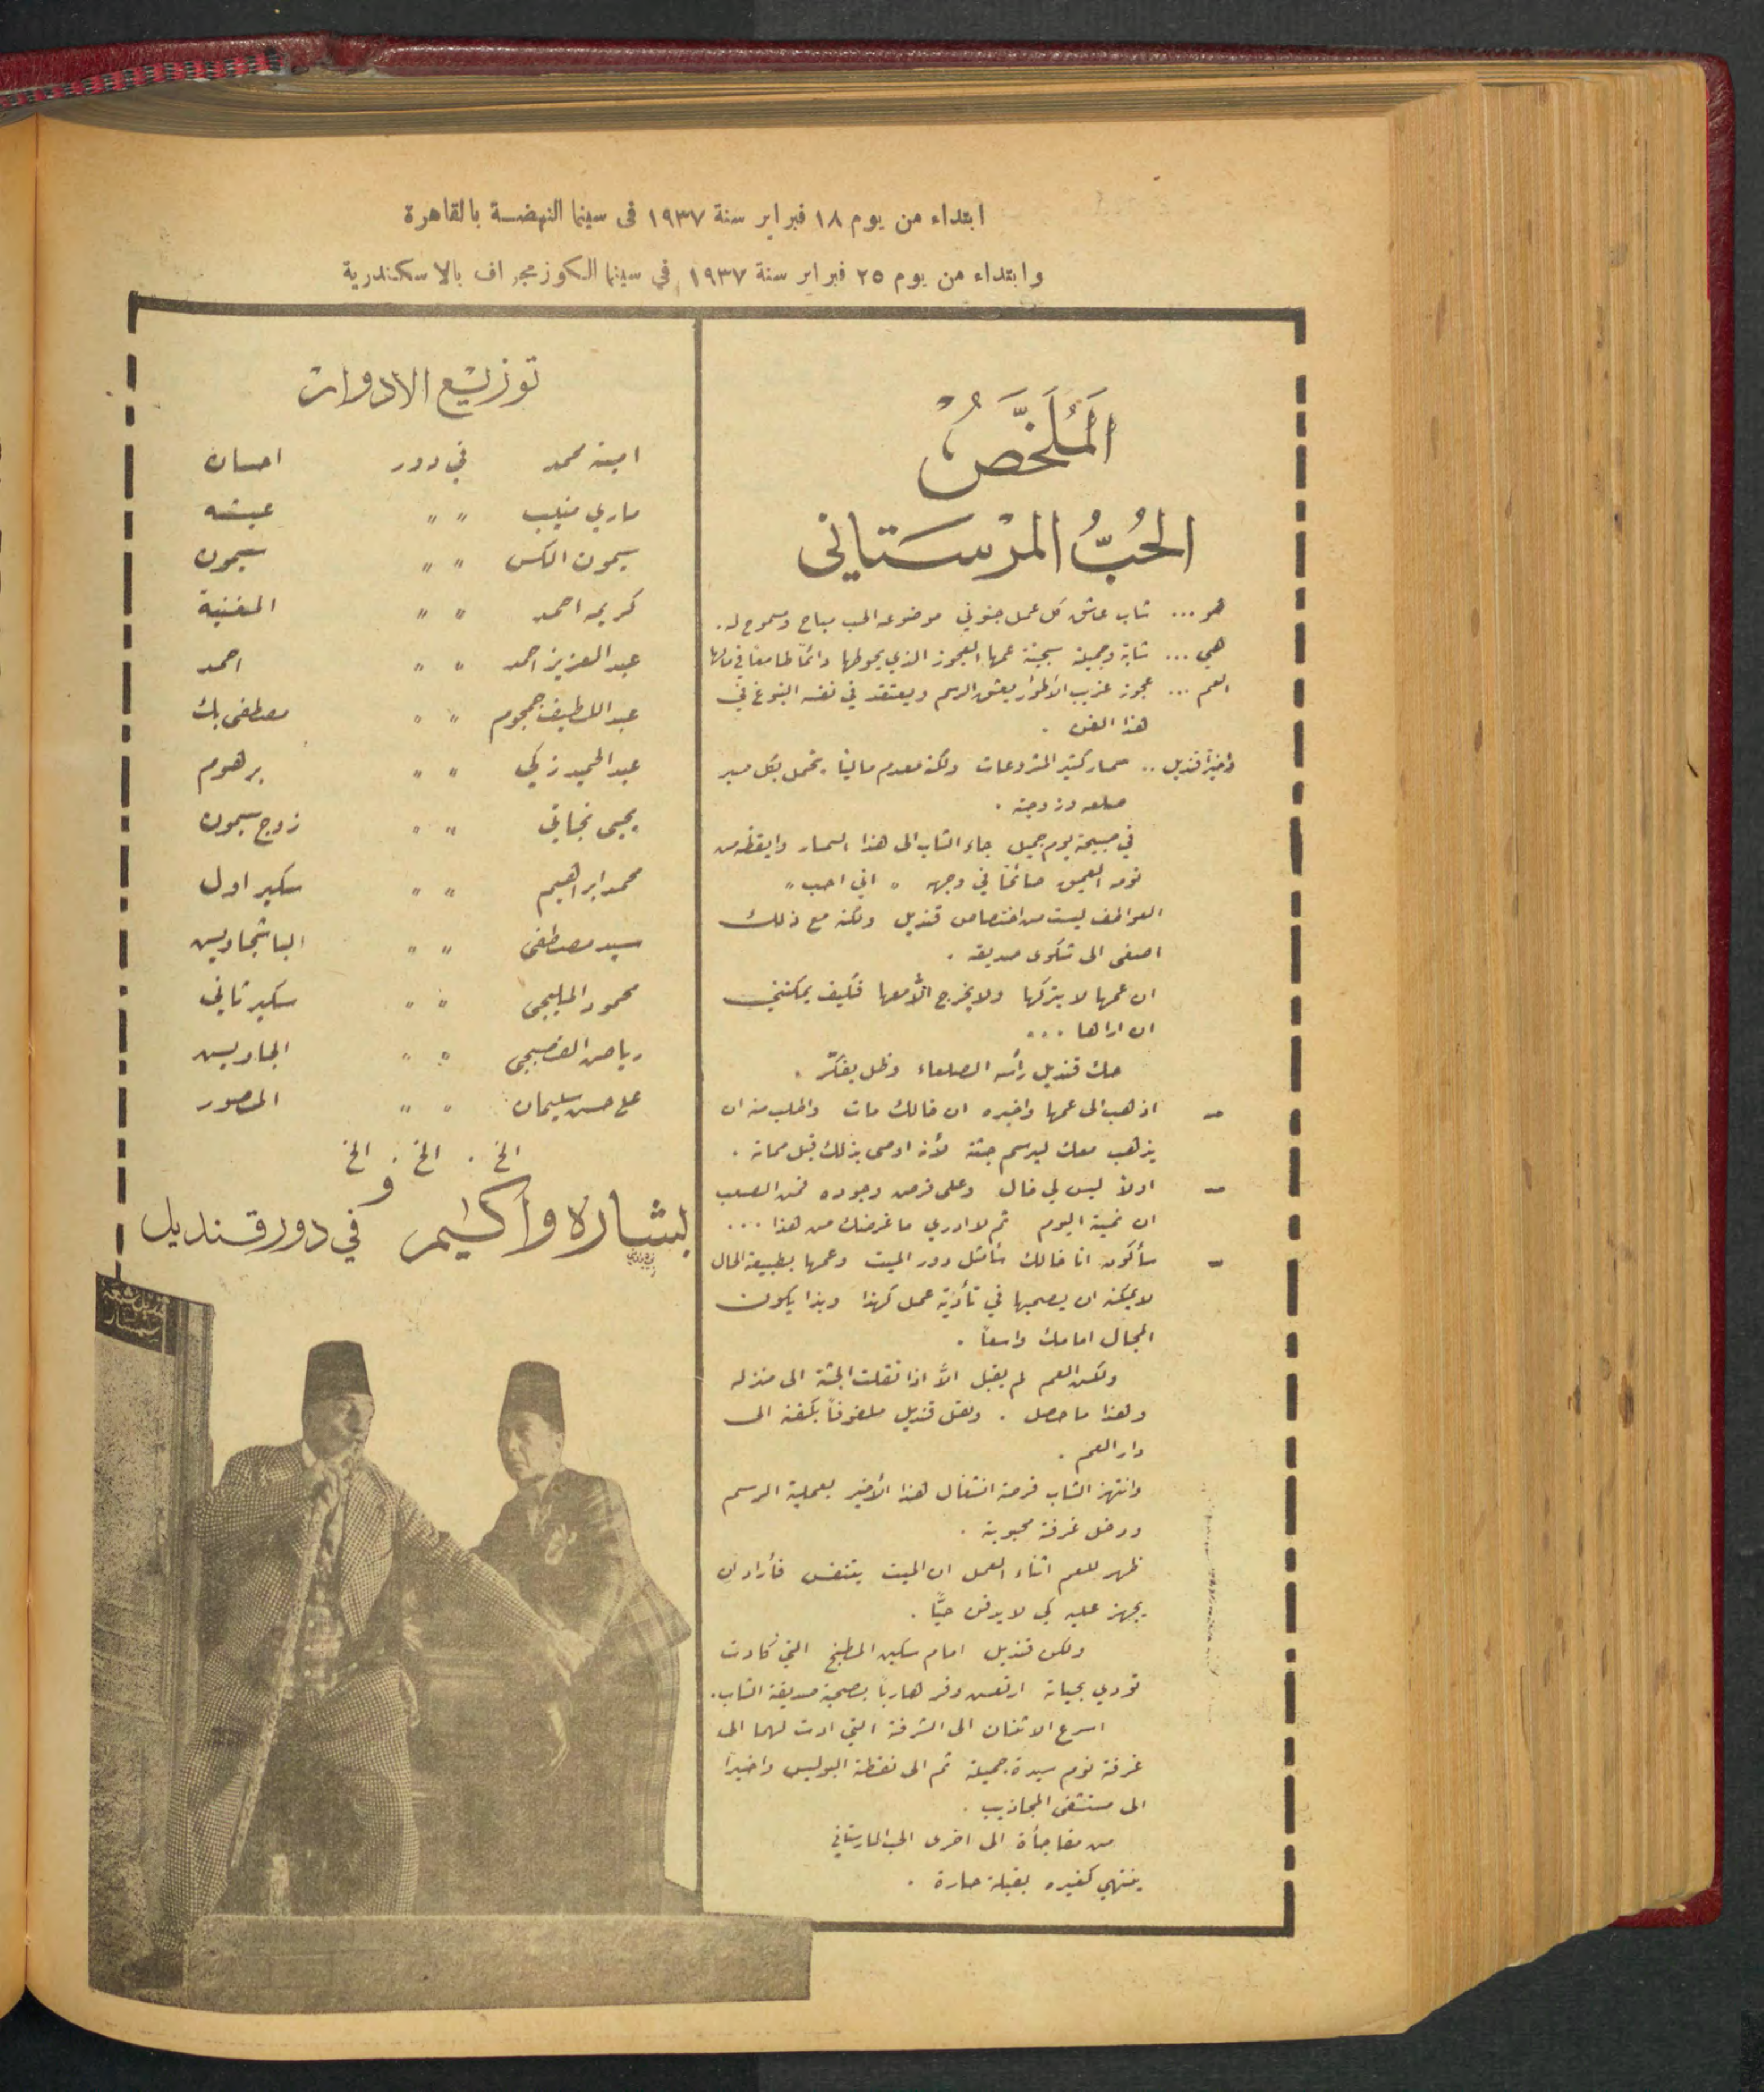 ابتداء من يوم ١٨ فبراير سنة ١٩٣٧ فى سينما النهضة بالقاهرة
وابتداء من يوم ٢٥ فبراير سنة ١٩٣٧ في سينما الكوزمجراف بالاسكندرية
المُلَخَّصُ
الحُبُّ المرْسَتاني
هو ... شاب عاشق كل عمل جنوني موضوعه الحب مباح ومسموح له .
هي ... شابة وجميلة سجينة عمها العجوز الذي يحوطها دائماً طامعاً في مالها
العم ... عجوز غريب الأطوار يعشق الرسم ويعتقد في نفسه النبوغ في
هذا الفن .
وأخيراً قنديل .. سمسار كثير المشروعات ولكنه معدم مالياً . يتحمل بكل صبر
صلعه وزوجته .
في صبيحة يوم جميل جاء الشاب الى هذا السمسار وايقظه من
نومه العميق صائحاً في وجهه " اني احب "
العواطف ليست من اختصاص قنديل ولكنه مع ذلك
اصغى الى شكوى صديقه .
ان عمها لا يتركها ولا يخرج الا معها فكيف يمكنني
ان اراها ...
حك قنديل رأسه الصلعاء وظل يفكّر .
– اذهب الى عمها واخبره ان خالك مات واطلب منه ان
يذهب معك ليرسم جثته لأنه اوصى بذلك قبل مماته .
– اولاً ليس لي خال وعلى فرض وجوده فمن الصعب
ان نميته اليوم ثم لا ادري ما غرضك من هذا ...
– سأكون انا خالك سأمثل دور الميت وعمها بطبيعة الحال
لا يمكنه ان يصحبها في تأدية عمل كهذا وبذا يكون
المجال امامك واسعاً .
ولكن العم لم يقبل الاّ اذا نقلت الجثة الى منزله
وهذا ما حصل . ونقل قنديل ملفوفاً بكفنه الى
دار العم .
وانتهز الشاب فرصة انشغال هذا الأخير بعملية الرسم
ودخل غرفة محبوبته .
ظهر للعم اثناء العمل ان الميت يتنفس فأراد ان
يجهز عليه كي لا يدفن حيًّا .
ولكن قنديل امام سكين المطبخ التي كادت
تودي بحياته ارتعش وفر هارباً بصحبة صديقه الشاب .
اسرع الاثنان الى الشرفة التي ادت لهما الى
غرفة نوم سيدة جميلة ثم الى نقطة البوليس واخيراً
الى مستشفى المجاذيب .
من مفاجأة الى اخرى الحب المارستاني
ينتهي كغيره بقبلة حارة .
توزيع الادوار
امينه محمد في دور احسان
ماري منيب " " عيشه
سيمون الكس " " سيمون
كريمه احمد " " المغنية
عبد العزيز احمد " " احمد
عبد اللطيف جمجوم " " مصطفى بك
عبد الحميد زكي " " برهوم
يحيى نجاتي " " زوج سيمون
محمد ابراهيم " " سكير اول
سيد مصطفى " " الباشجاويس
محمود المليجى " " سكير ثاني
رياض القصبجي " " الجاويس
علي حسن سليمان " " المصور
الخ . الخ . الخ
و
بشاره واكيم في دور قنديل
قنديل شمعه
سمسار